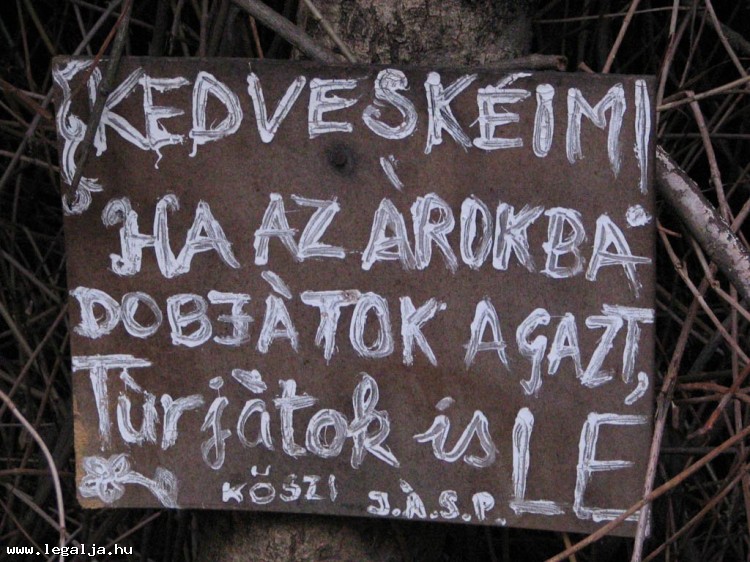 KEDVESKÉIM!
HA AZ ÀROKBA
DOBJÀTOK A GAZT,
Túrjàtok is LE
KÖSZI J.À.S.P.
www.legalja.hu